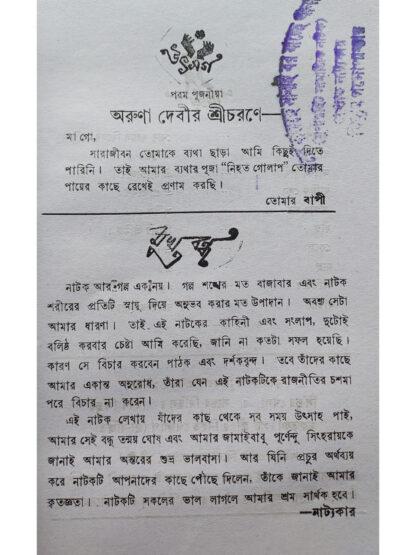 উৎসর্গ
পরম পূজনীয়া
অরুণা দেবীর শ্রীচরণে—
মা গো,
সারাজীবন তোমাকে ব্যথা ছাড়া আমি কিছুই দিতে
পারিনি। তাই আমার ব্যথার পূজা “নিহত গোলাপ” তোমার
পায়ের কাছে রেখেই প্রণাম করছি।
তোমার বাপী
মুখবন্ধ
নাটক আর গল্প এক নয়। গল্প শঙ্খের মত বাজাবার এবং নাটক
শরীরের প্রতিটি স্নায়ু দিয়ে অনুভব করার মত উপাদান। অবশ্য সেটা
আমার ধারণা। তাই এই নাটকের কাহিনী এবং সংলাপ, দুটোই
বলিষ্ঠ করবার চেষ্টা আমি করেছি, জানি না কতটা সফল হয়েছি।
কারণ সে বিচার করবেন পাঠক এবং দর্শকবৃন্দ। তবে তাঁদের কাছে
আমার একান্ত অনুরোধ, তাঁরা যেন এই নাটকটিকে রাজনীতির চশমা
পরে বিচার না করেন।
এই নাটক লেখায় যাঁদের কাছ থেকে সব সময় উৎসাহ পাই,
আমার সেই বন্ধু তন্ময় ঘোষ এবং আমার জামাইবাবু পূর্ণেন্দু সিংহরায়কে
জানাই আমার অন্তরের শুভ্র ভালবাসা। আর যিনি প্রচুর অর্থব্যয়
করে নাটকটি আপনাদের কাছে পৌঁছে দিলেন, তাঁকে জানাই আমার
কৃতজ্ঞতা। নাটকটি সকলের ভাল লাগলে আমার শ্রম সার্থক হবে।
—নাট্যকার